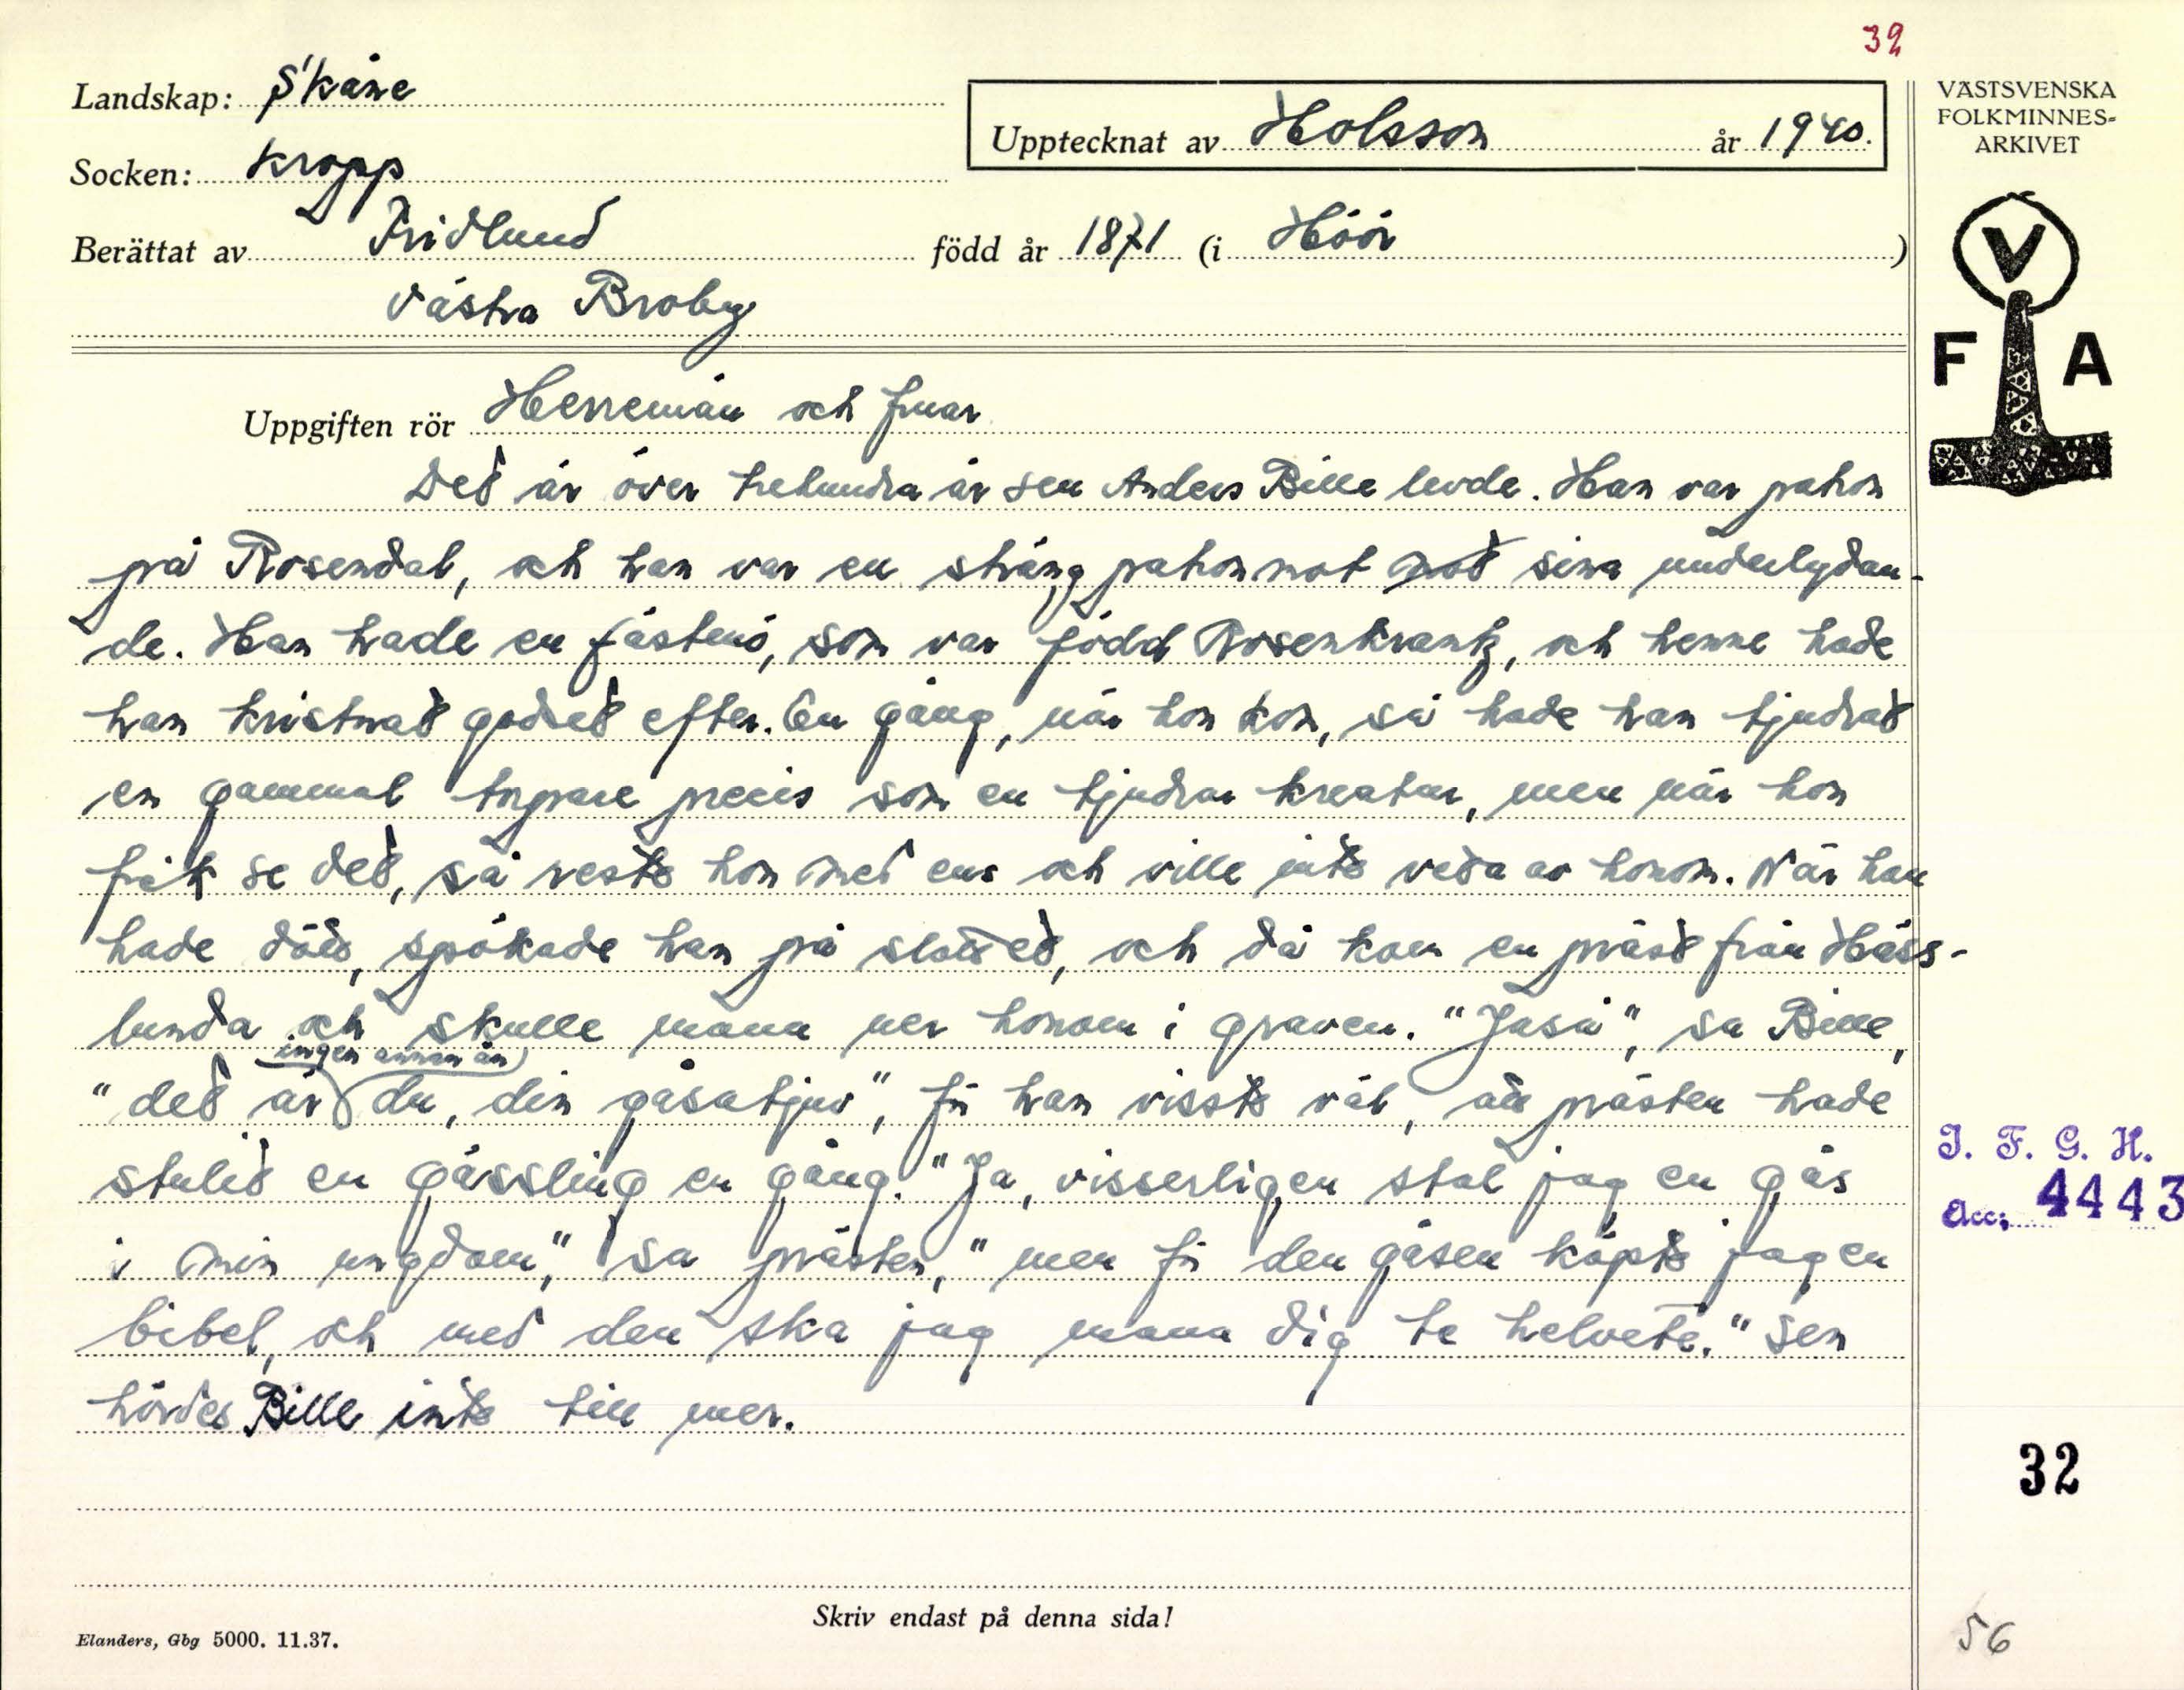 32
Landskap: Skåne
Upptecknat av Holsson år 1940.
VÄSTSVENSKA
FOLKMINNES-
ARKIVET
Socken: Kropp
Berättat av Fridlund född år 1871 (i Höör )
Västra Broby
V
F A
Uppgiften rör Herremän och fruar
Det är över trehundra år sen Anders Bille levde. Han var patron
på Rosendal, och han var en sträng patron mot mot sina underlydan-
de. Han hade en fästmö, som var född Rosenkrantz, och henne hade
han kristnat godset efter. En gång, när hon kom, så hade han tjudrat
en gammal torpare precis som en tjudrar kreatur, men när hon
fick se det, så reste hon med ens och ville inte veta av honom. När han
hade dött, spökade han på slottet, och då kom en präst från Häss-
lunda och skulle mana ner honom i graven. "Jaså", sa Bille,
ingen annan än
"det är du, din gåsatjuv", för han visste väl, att prästen hade
stulit en gässling en gång. "Ja, visserligen stal jag en gås
i min ungdom," sa prästen, "men för den gåsen köpte jag en
bibel, och med den ska jag mana dig te helvete." Sen
hördes Bille inte till mer.
I. F. G. H.
Acc; 4443
32
Skriv endast på denna sida!
Elanders, Gbg 5000. 11.37.
56